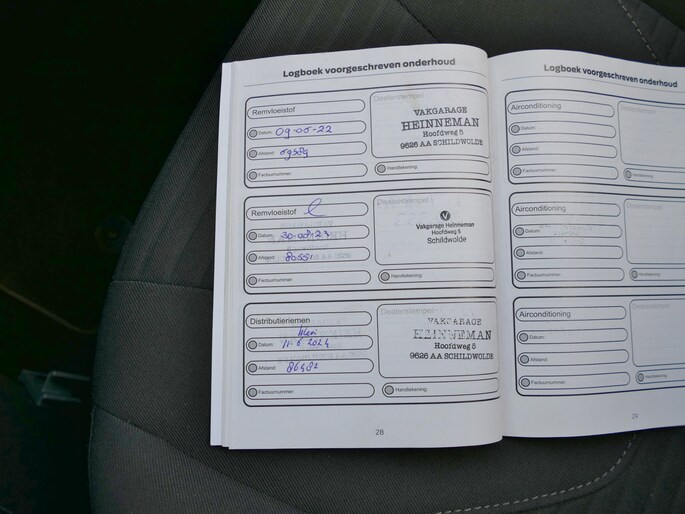 Logboek voorgeschreven onderhoud
Remvloeistof
Datum: 09-05-22
Afstand: 69589
Factuurnummer:
Dealerstempel:
VAKGARAGE
HEINNEMAN
Hoofdweg 5
9626 AA SCHILDWOLDE
Handtekening:
Remvloeistof
Datum: 30-08-23
Afstand: 80551
Factuurnummer:
Dealerstempel:
Vakgarage Heinneman
Hoofdweg 5
Schildwolde
Handtekening:
Distributieriemen
Datum: 11-6 2024
Afstand: 86482
Factuurnummer:
Dealerstempel:
VAKGARAGE
HEINNEMAN
Hoofdweg 5
9626 AA SCHILDWOLDE
Handtekening:
28
Logboek voorgeschreven onderhoud
Airconditioning
Datum:
Afstand:
Factuurnummer:
Dealerstempel:
Handtekening:
Airconditioning
Datum:
Afstand:
Factuurnummer:
Dealerstempel:
Handtekening:
Airconditioning
Datum:
Afstand:
Factuurnummer:
Dealerstempel:
Handtekening:
29